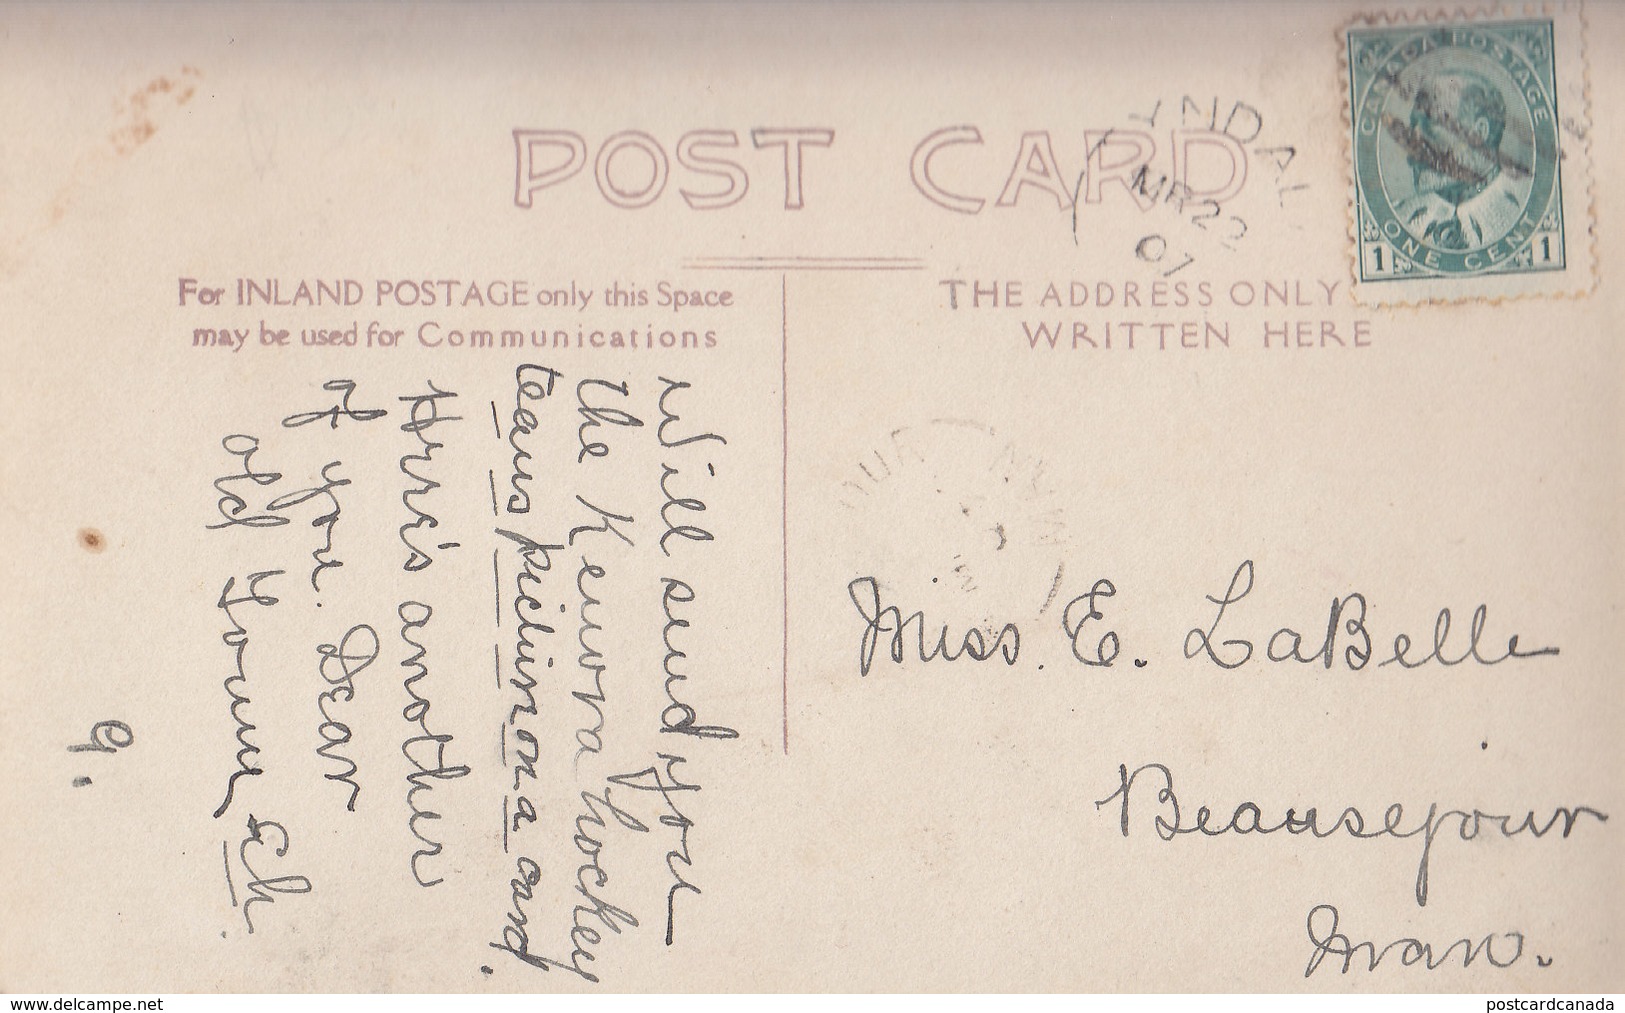 POST CARD
For INLAND POSTAGE only this Space
may be used for Communications
THE ADDRESS ONLY
WRITTEN HERE
CANADA POSTAGE
ONE CENT
1 1
YNDAL
MR 22
07
OUR
MAN
Will send you
the Kenora hockey
teams picktur on a card.
Herre's another
of you. Dear
old Tommy, Eh.
G.
Miss. E. LaBelle
Beausejour
Man.
www.delcampe.net
postcardcanada